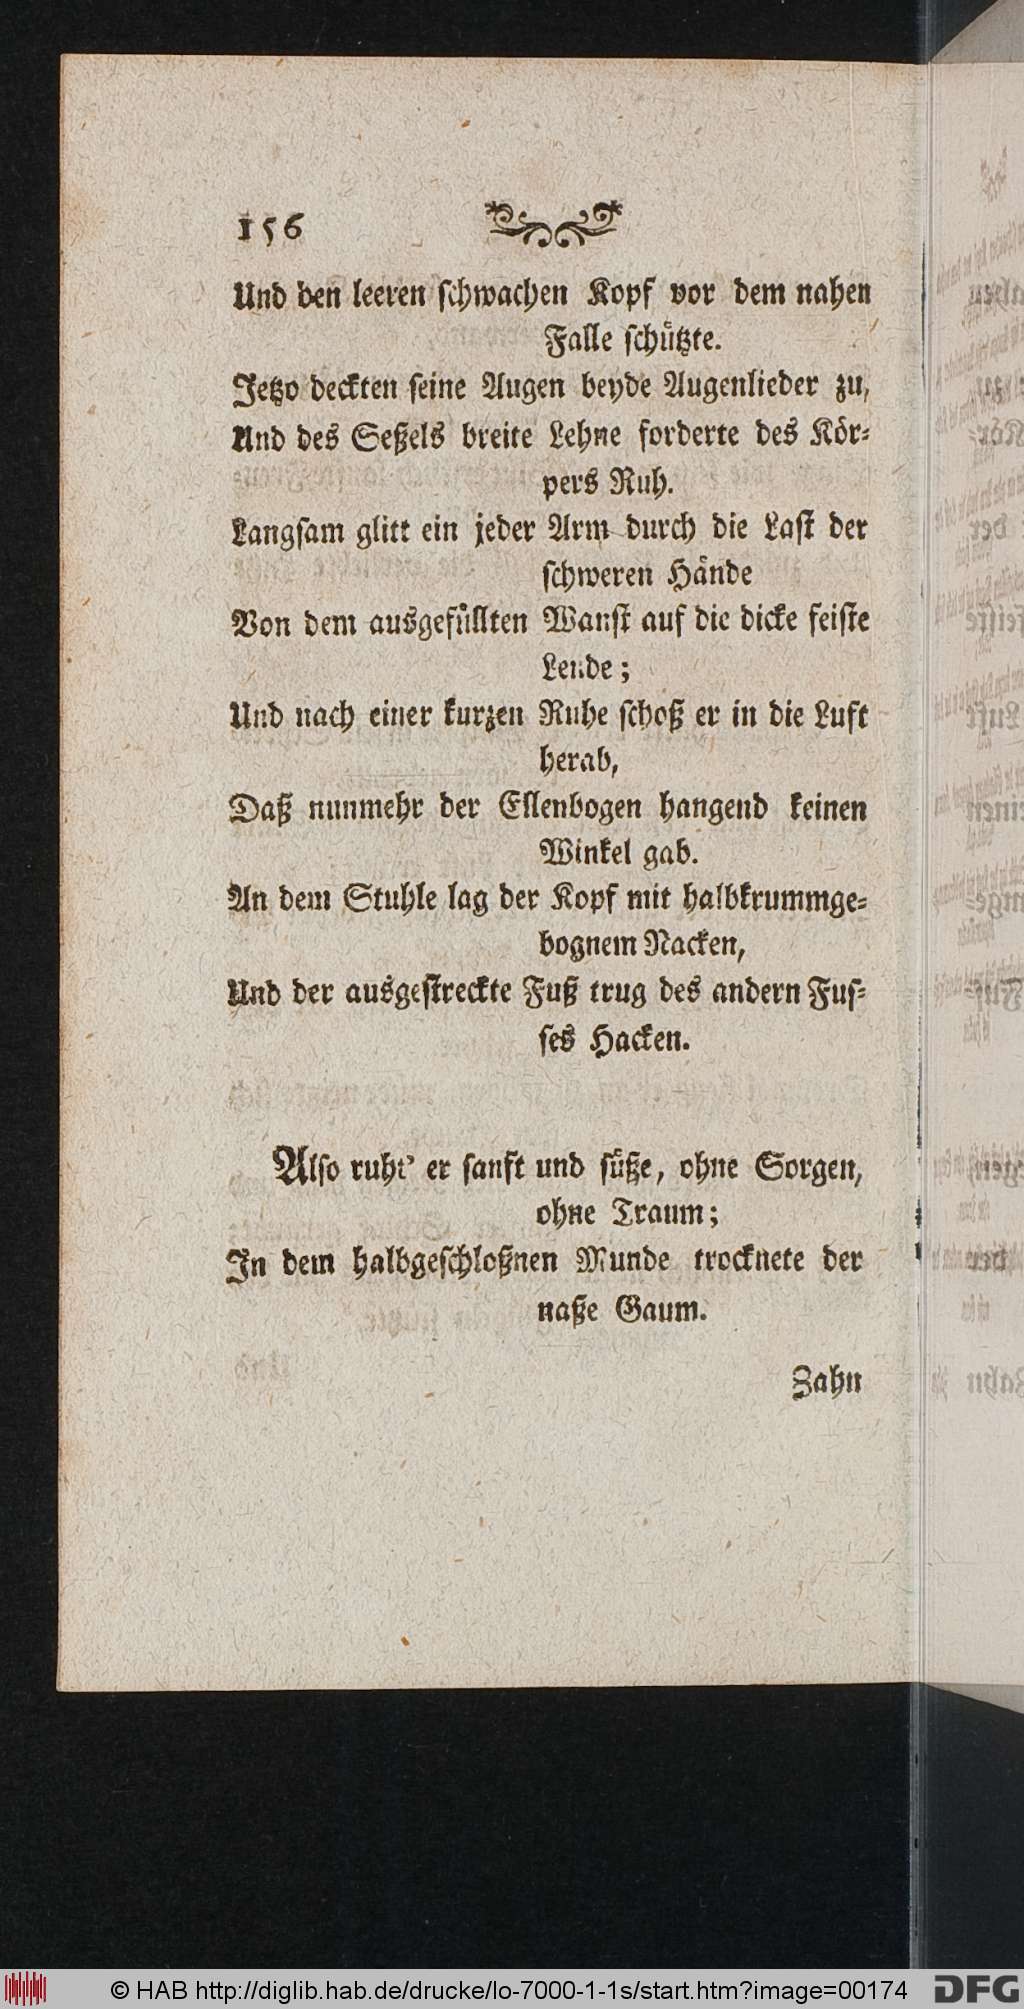 156
Und den leeren schwachen Kopf vor dem nahen
Falle schützte.
Jetzo deckten seine Augen beyde Augenlieder zu,
Und des Seßels breite Lehne forderte des Kör-
pers Ruh.
Langsam glitt ein jeder Arm durch die Last der
schweren Hände
Von dem ausgefüllten Wanst auf die dicke feiste
Lende;
Und nach einer kurzen Ruhe schoß er in die Luft
herab,
Daß nunmehr der Ellenbogen hangend keinen
Winkel gab.
An dem Stuhle lag der Kopf mit halbkrummge-
bognem Nacken,
Und der ausgestreckte Fuß trug des andern Fus-
ses Hacken.
Also ruht' er sanft und süße, ohne Sorgen,
ohne Traum;
In dem halbgeschloßnen Munde trocknete der
naße Gaum.
Zahn
© HAB http://diglib.hab.de/drucke/lo-7000-1-1s/start.htm?image=00174
DFG